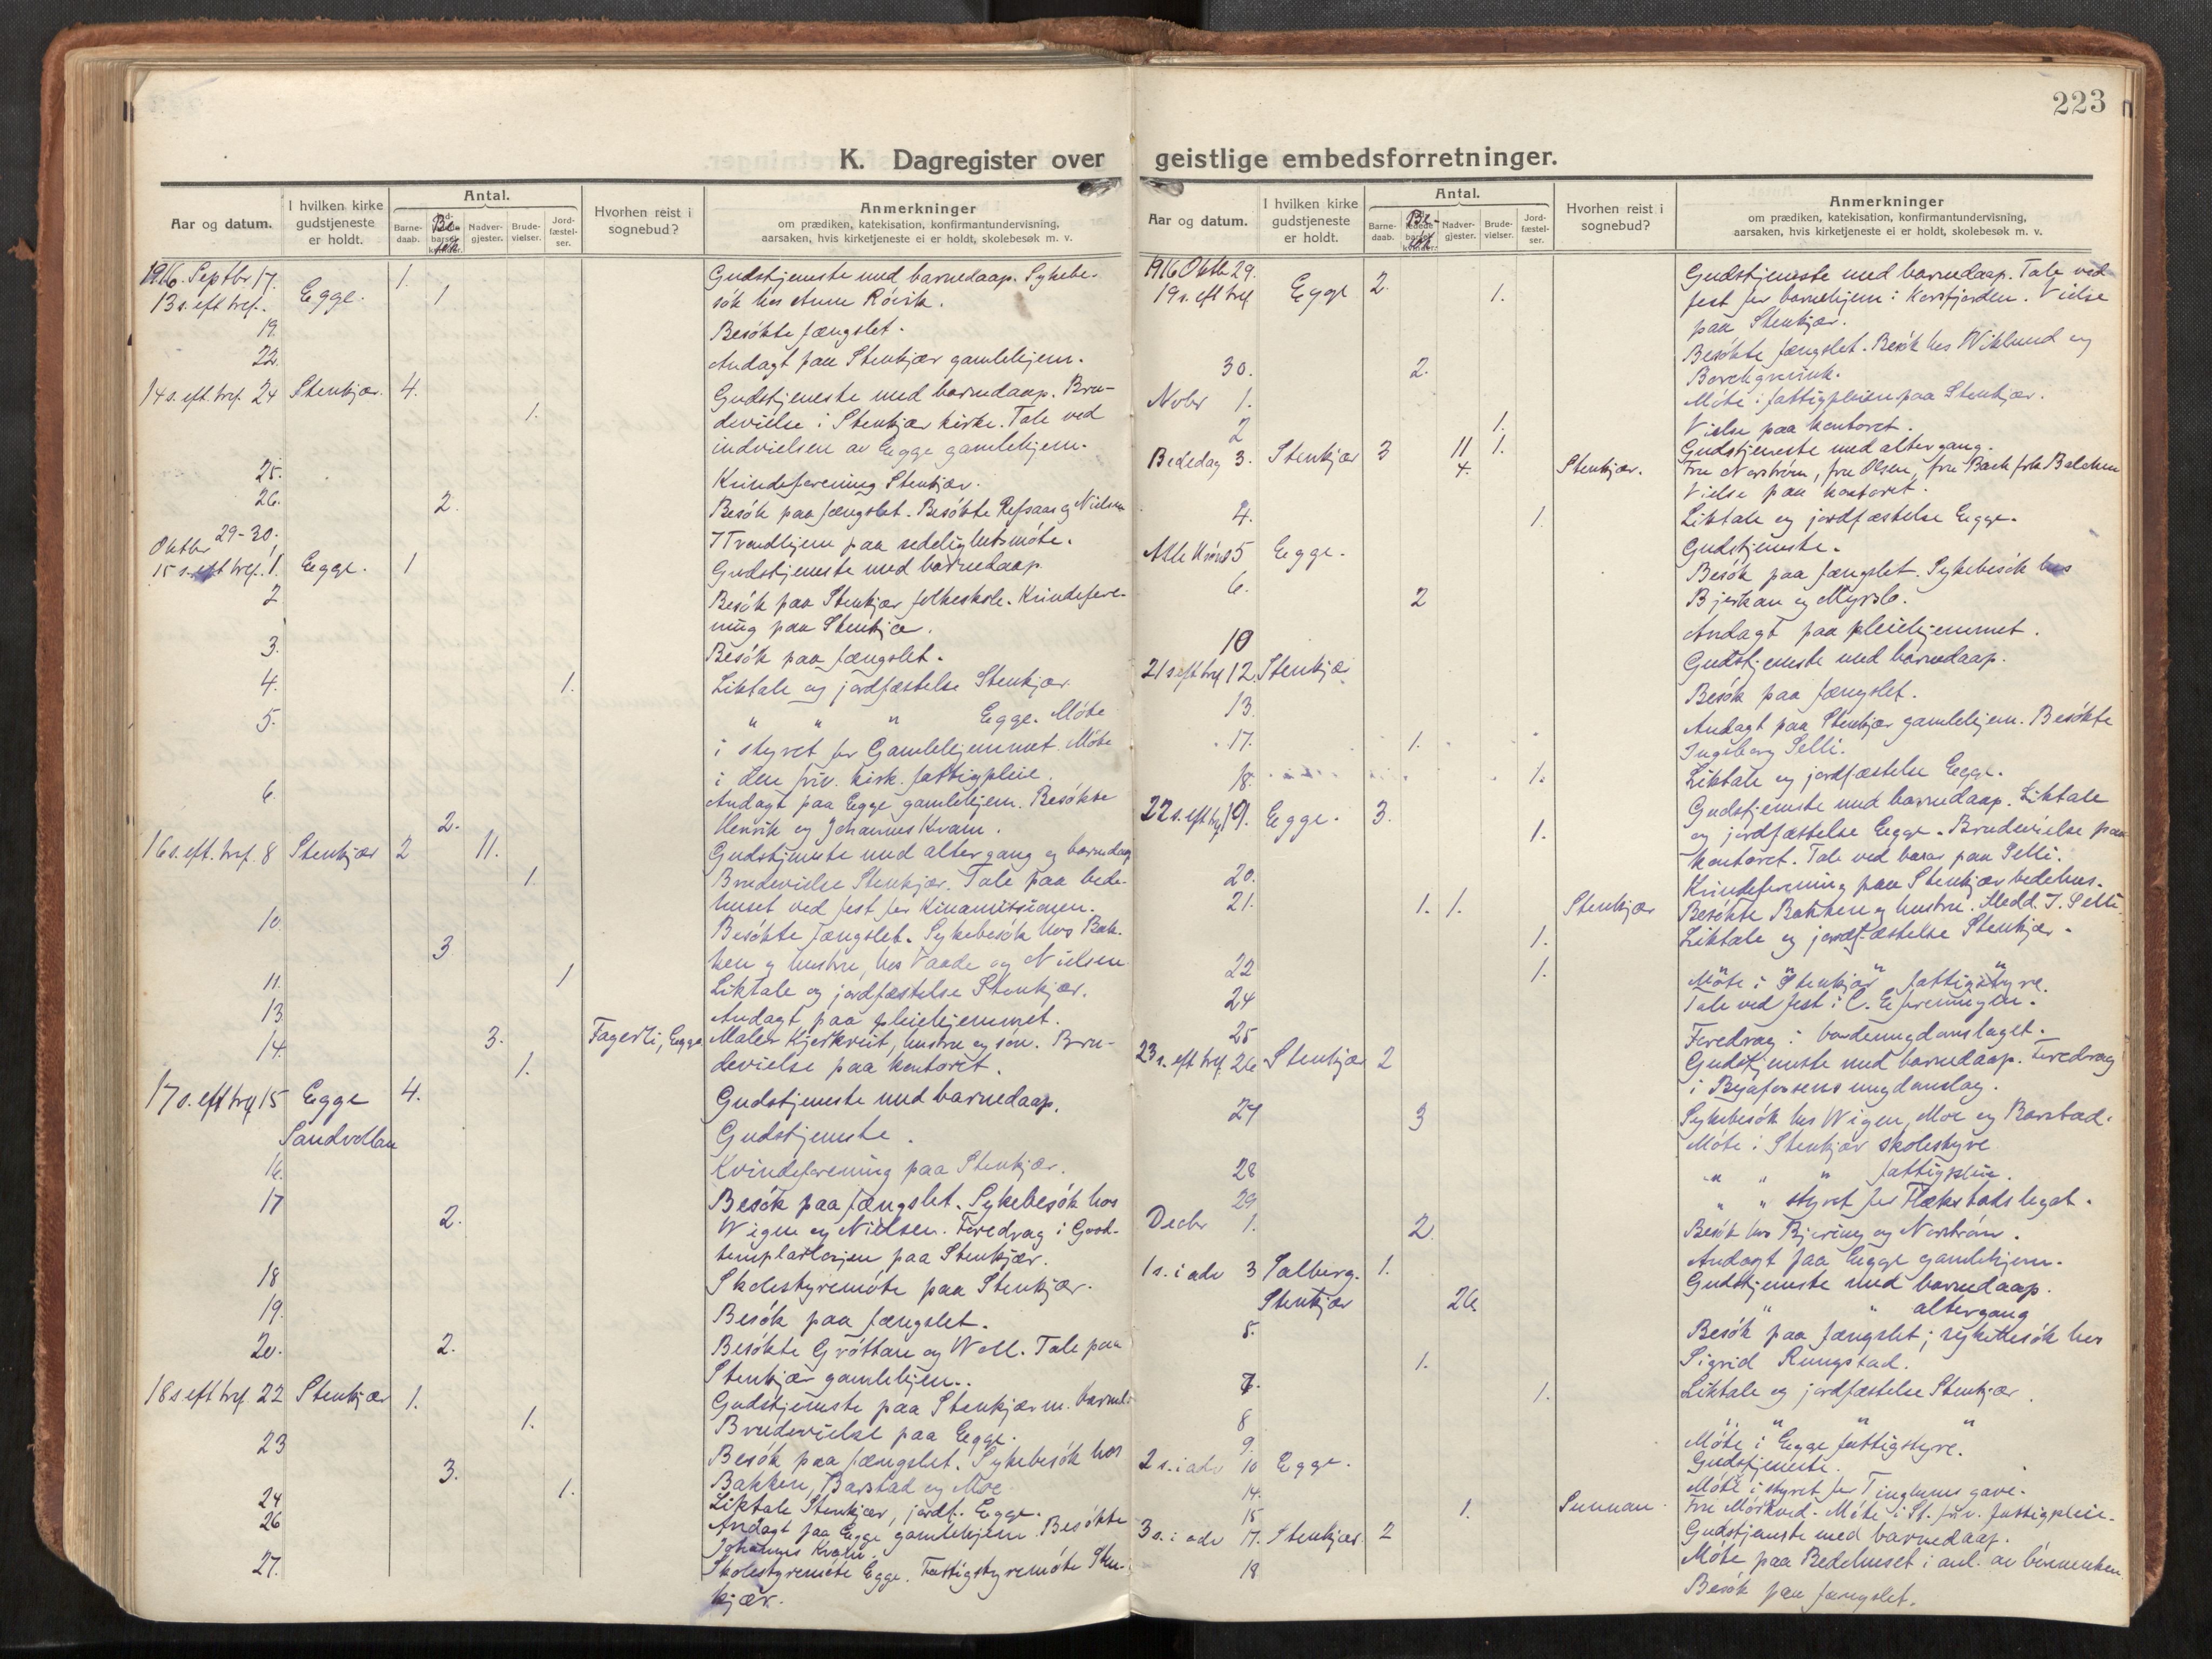 223
K. Dagregister over geistlige embedsforretninger.
Aar og datum.
I hvilken kirke gudstjeneste er holdt.
Antal.
Barne-daab.
Be-søk
Nadver-gjester.
Brude-vielser.
Jord-fæstel-ser.
Hvorhen reist i sognebud?
Anmerkninger
om prædiken, katekisation, konfirmantundervisning,
aarsaken, hvis kirketjeneste ei er holdt, skolebesøk m. v.
1916. Septbr 17. 1. Gudstjeneste med barnedaap. Sykebe-
13 s. eft. tref. Egge. 1 søk hos Anne Røvik.
19. Besøkte fængslet.
22. Andagt paa Stenkjær gamlehjem.
14 s. eft. tref. 24 Stenkjær. 4. Gudstjeneste med barnedaap. Bru-
1. devielse i Stenkjær kirke. Tale ved
indvielsen av Egge gamlehjem.
25. Kvindeforening Stenkjær.
26. 2. Besøk paa fængslet. Besøkte Refsaas og Nielsen
29-30. I Trondhjem paa sedelighetsmøte.
Oktbr
15 s. eft tref. 1. Egge. 1 Gudstjeneste med barnedaap
2 Besøk paa Stenkjær folkeskole. Kvindefore-
ning paa Stenkjær.
3. Besøk paa fængslet.
4. 1. Liktale og jordfæstelse Stenkjær
5. " " " Egge. Møte
i styret for Gamlehjemmet. Møte
i den friv. kirk. fattigpleie.
6. Andagt paa Egge gamlehjem. Besøkte
2. Henrik og Johannes Kvam.
16 s. eft. tref. 8 Stenkjær 2 11. Gudstjeneste med altergang og barnedaap
1. Brudevielse Stenkjær. Tale paa bede-
huset ved fest for Kinamissionen.
10. Besøkte fængslet. Sykebesøk hos Bak-
3 ken og hustru, hos Vaade og Nielsen
11. 1 Liktale og jordfæstelse Stenkjær.
13 Andagt paa pleiehjemmet.
14. 3. Fagerli, Egge Maler Kjerkreit, hustru og søn. Bru-
1. devielse paa kontoret.
17 s. eft tref 15 Egge 4. Gudstjeneste med barnedaap.
Sandvollan Gudstjeneste.
16. Kvindeforening paa Stenkjær.
17 Besøk paa fængslet. Sykebesøk hos
2. Wigen og Nielsen. Foredrag i Good-
templarlogen paa Stenkjær.
18 Skolestyremøte paa Stenkjær.
19. Besøk paa fængslet.
20. 2. Besøkte Grøttan og Woll. Tale paa
Stenkjær gamlehjem.
18 s. eft tref. 22 Stenkjær 1. Gudstjeneste paa Stenkjær m. barned.
1. Brudevielse paa Egge.
23 Besøk paa fængslet. Sykebesøk hos
3. Bakken, Barstad og Moe
24 1. Liktale Stenkjær, jordf. Egge.
26 Andagt paa Egge gamlehjem. Besøkte
Johannes Kvam.
27. Skolestyremøte Egge. Fattigstyremøte Sten-
kjær.
Aar og datum.
I hvilken kirke gudstjeneste er holdt.
Antal.
Barne-daab.
Be-søk
Nadver-gjester.
Brude-vielser.
Jord-fæstel-ser.
Hvorhen reist i sognebud?
Anmerkninger
om prædiken, katekisation, konfirmantundervisning,
aarsaken, hvis kirketjeneste ei er holdt, skolebesøk m. v.
1916 Oktb 29. 2. Gudstjeneste med barnedaap. Tale ved
19 s. eft tref Egge 1. fest for barnehjem i Korsfjorden. Vielse
paa Stenkjær.
30. 2. Besøkte fængslet. Besøk hos Wiklund og
Borchgrevink.
Novbr 1. Møte i fattigpleien paa Stenkjær.
2 1. Vielse paa kontoret.
Bededag 3. Stenkjær 3 11 1. Gudstjeneste med altergang.
4. Stenkjær. Fru Norstrøm, fru Olsen, fru Bach, frk Balchen
Vielse paa kontoret.
4. 1. Liktale og jordfæstelse Egge.
5 Egge. Gudstjeneste.
6. Besøk paa fængslet. Sykebesøk hos
2 Bjerkan og Myrslo.
10 Andagt paa pleiehjemmet.
21 s eft tref 12 Stenkjær Gudstjeneste med barnedaap.
13 Besøk paa fængslet.
17. 1. Andagt paa Stenkjær gamlehjem. Besøkte
Ingeborg Selli.
18. 1. Liktale og jordfæstelse Egge.
22 s. eft tref 19. Egge. 3. Gudstjeneste med barnedaap. Liktale
1. og jordfæstelse Egge. Brudevielse paa
kontoret. Tale ved basar paa Selli.
20. Kvindeforening paa Stenkjær bedehus.
21. 1. 1. Stenkjær Besøkte Bakken og hustru. Medd. I. Selli.
1. Liktale og jordfæstelse Stenkjær.
22 1. " " " "
Møte i Stenkjær fattigstyre.
24 Tale ved fest i C. E. foreningen.
25 Foredrag i bondeungdomslaget.
23 s. eft tref. 26 Stenkjær 2 Gudstjeneste med barnedaap. Foredrag
i Byafossens ungdomslag.
27 3 Sykebesøk hos Wigen, Moe og Barstad.
Møte i Stenkjær skolestyre
28 " " " fattigpleie.
29 " " styret for Flekstads legat.
Decbr 1. 2. Besøk hos Bjering og Norstrøm.
Andagt paa Egge gamlehjem.
1 s. i adv 3 Solberg. 1. Gudstjeneste med barnedaap.
Stenkjær 26 " " altergang
5. Besøk paa fængslet; sykebesøk hos
1. Sigrid Rungstad.
7. 1. Liktale og jordfæstelse Stenkjær.
8 " " " "
9. Møte i Egge fattigstyre.
2 s. i adv 10 Egge. Gudstjeneste.
14. Møte i styret for Tinglums gave.
15 1. Sunnan. Fru Mørkved. Møte i St. friv. fattigpleie.
3 s. i adv 17. Stenkjær 2 Gudstjeneste med barnedaap.
18 Møte paa Bedehuset i anl. av
Besøk paa fængslet.